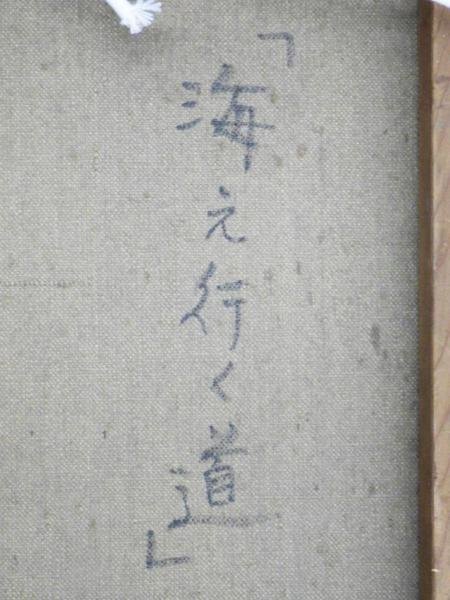 「海え行く道」